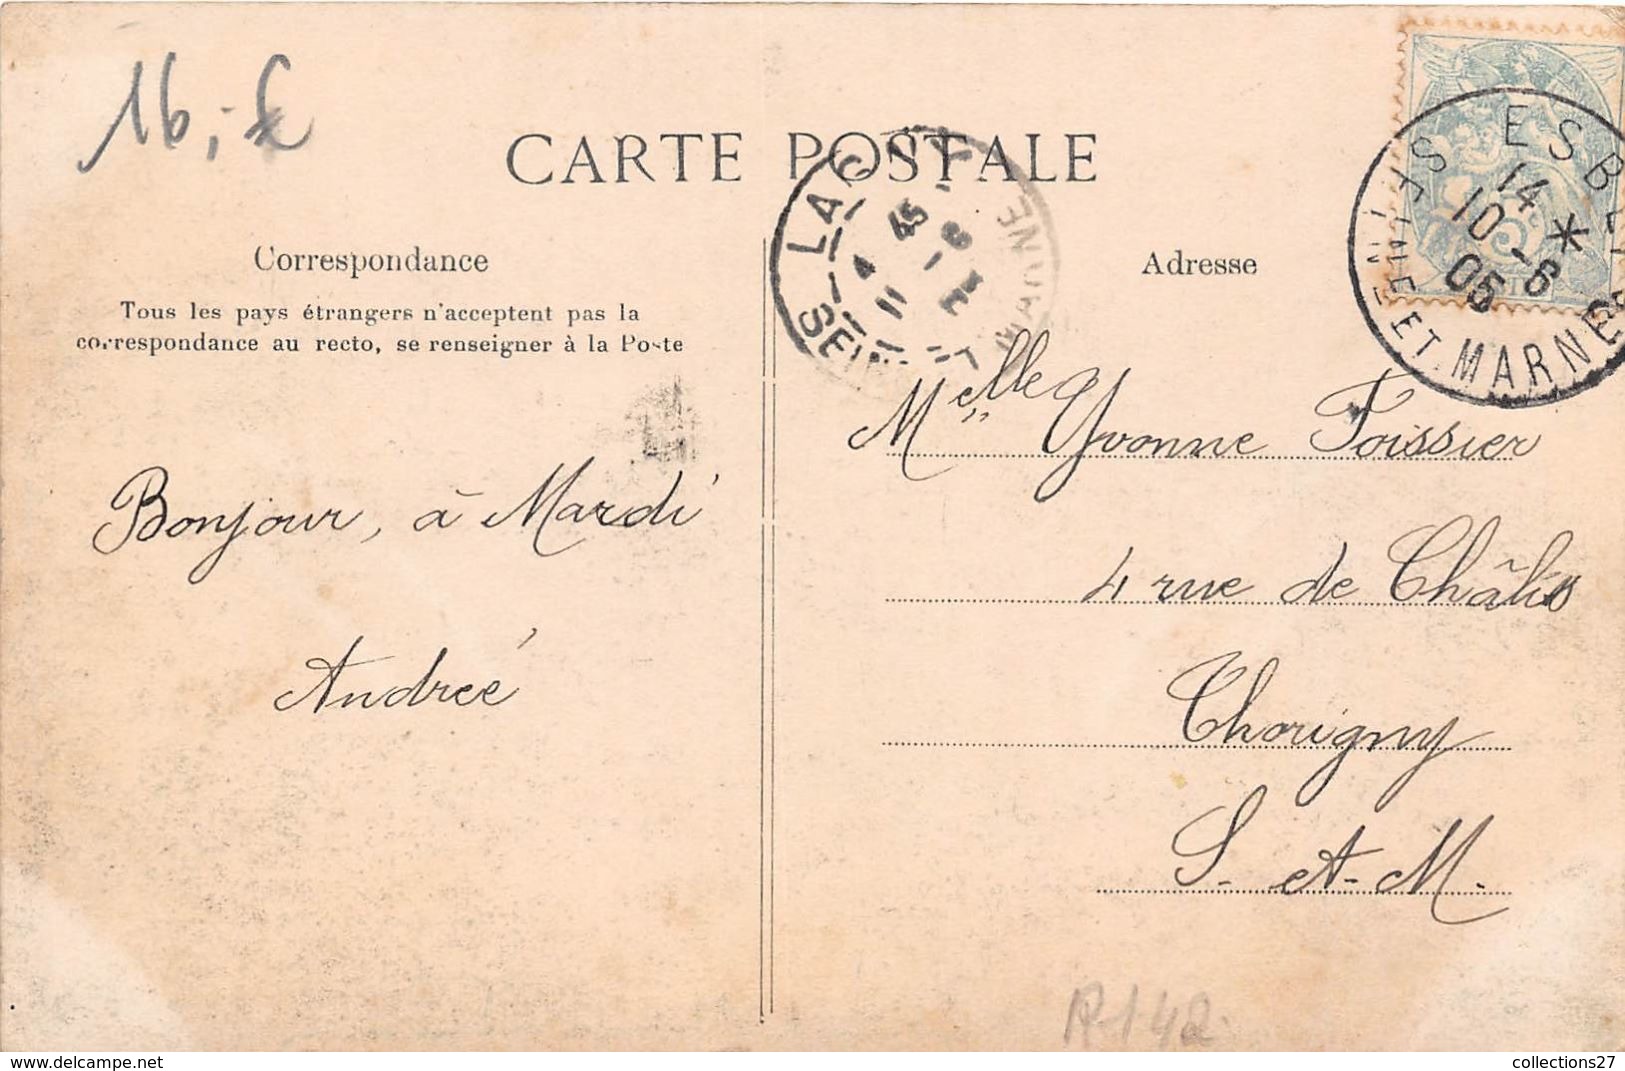 16,-£
CARTE POSTALE
ESBLY
14
10 -6
05
SEINE ET MARNE
LAGNY
45
4
11 - 6
SEINE ET MARNE
Correspondance
Tous les pays étrangers n'acceptent pas la
correspondance au recto, se renseigner à la Poste
Adresse
Melle Yvonne Foissier
4 rue de Châlis
Thorigny
S. et-M.
Bonjour, à Mardi
Andreé
R142
www.delcampe.net
collections27